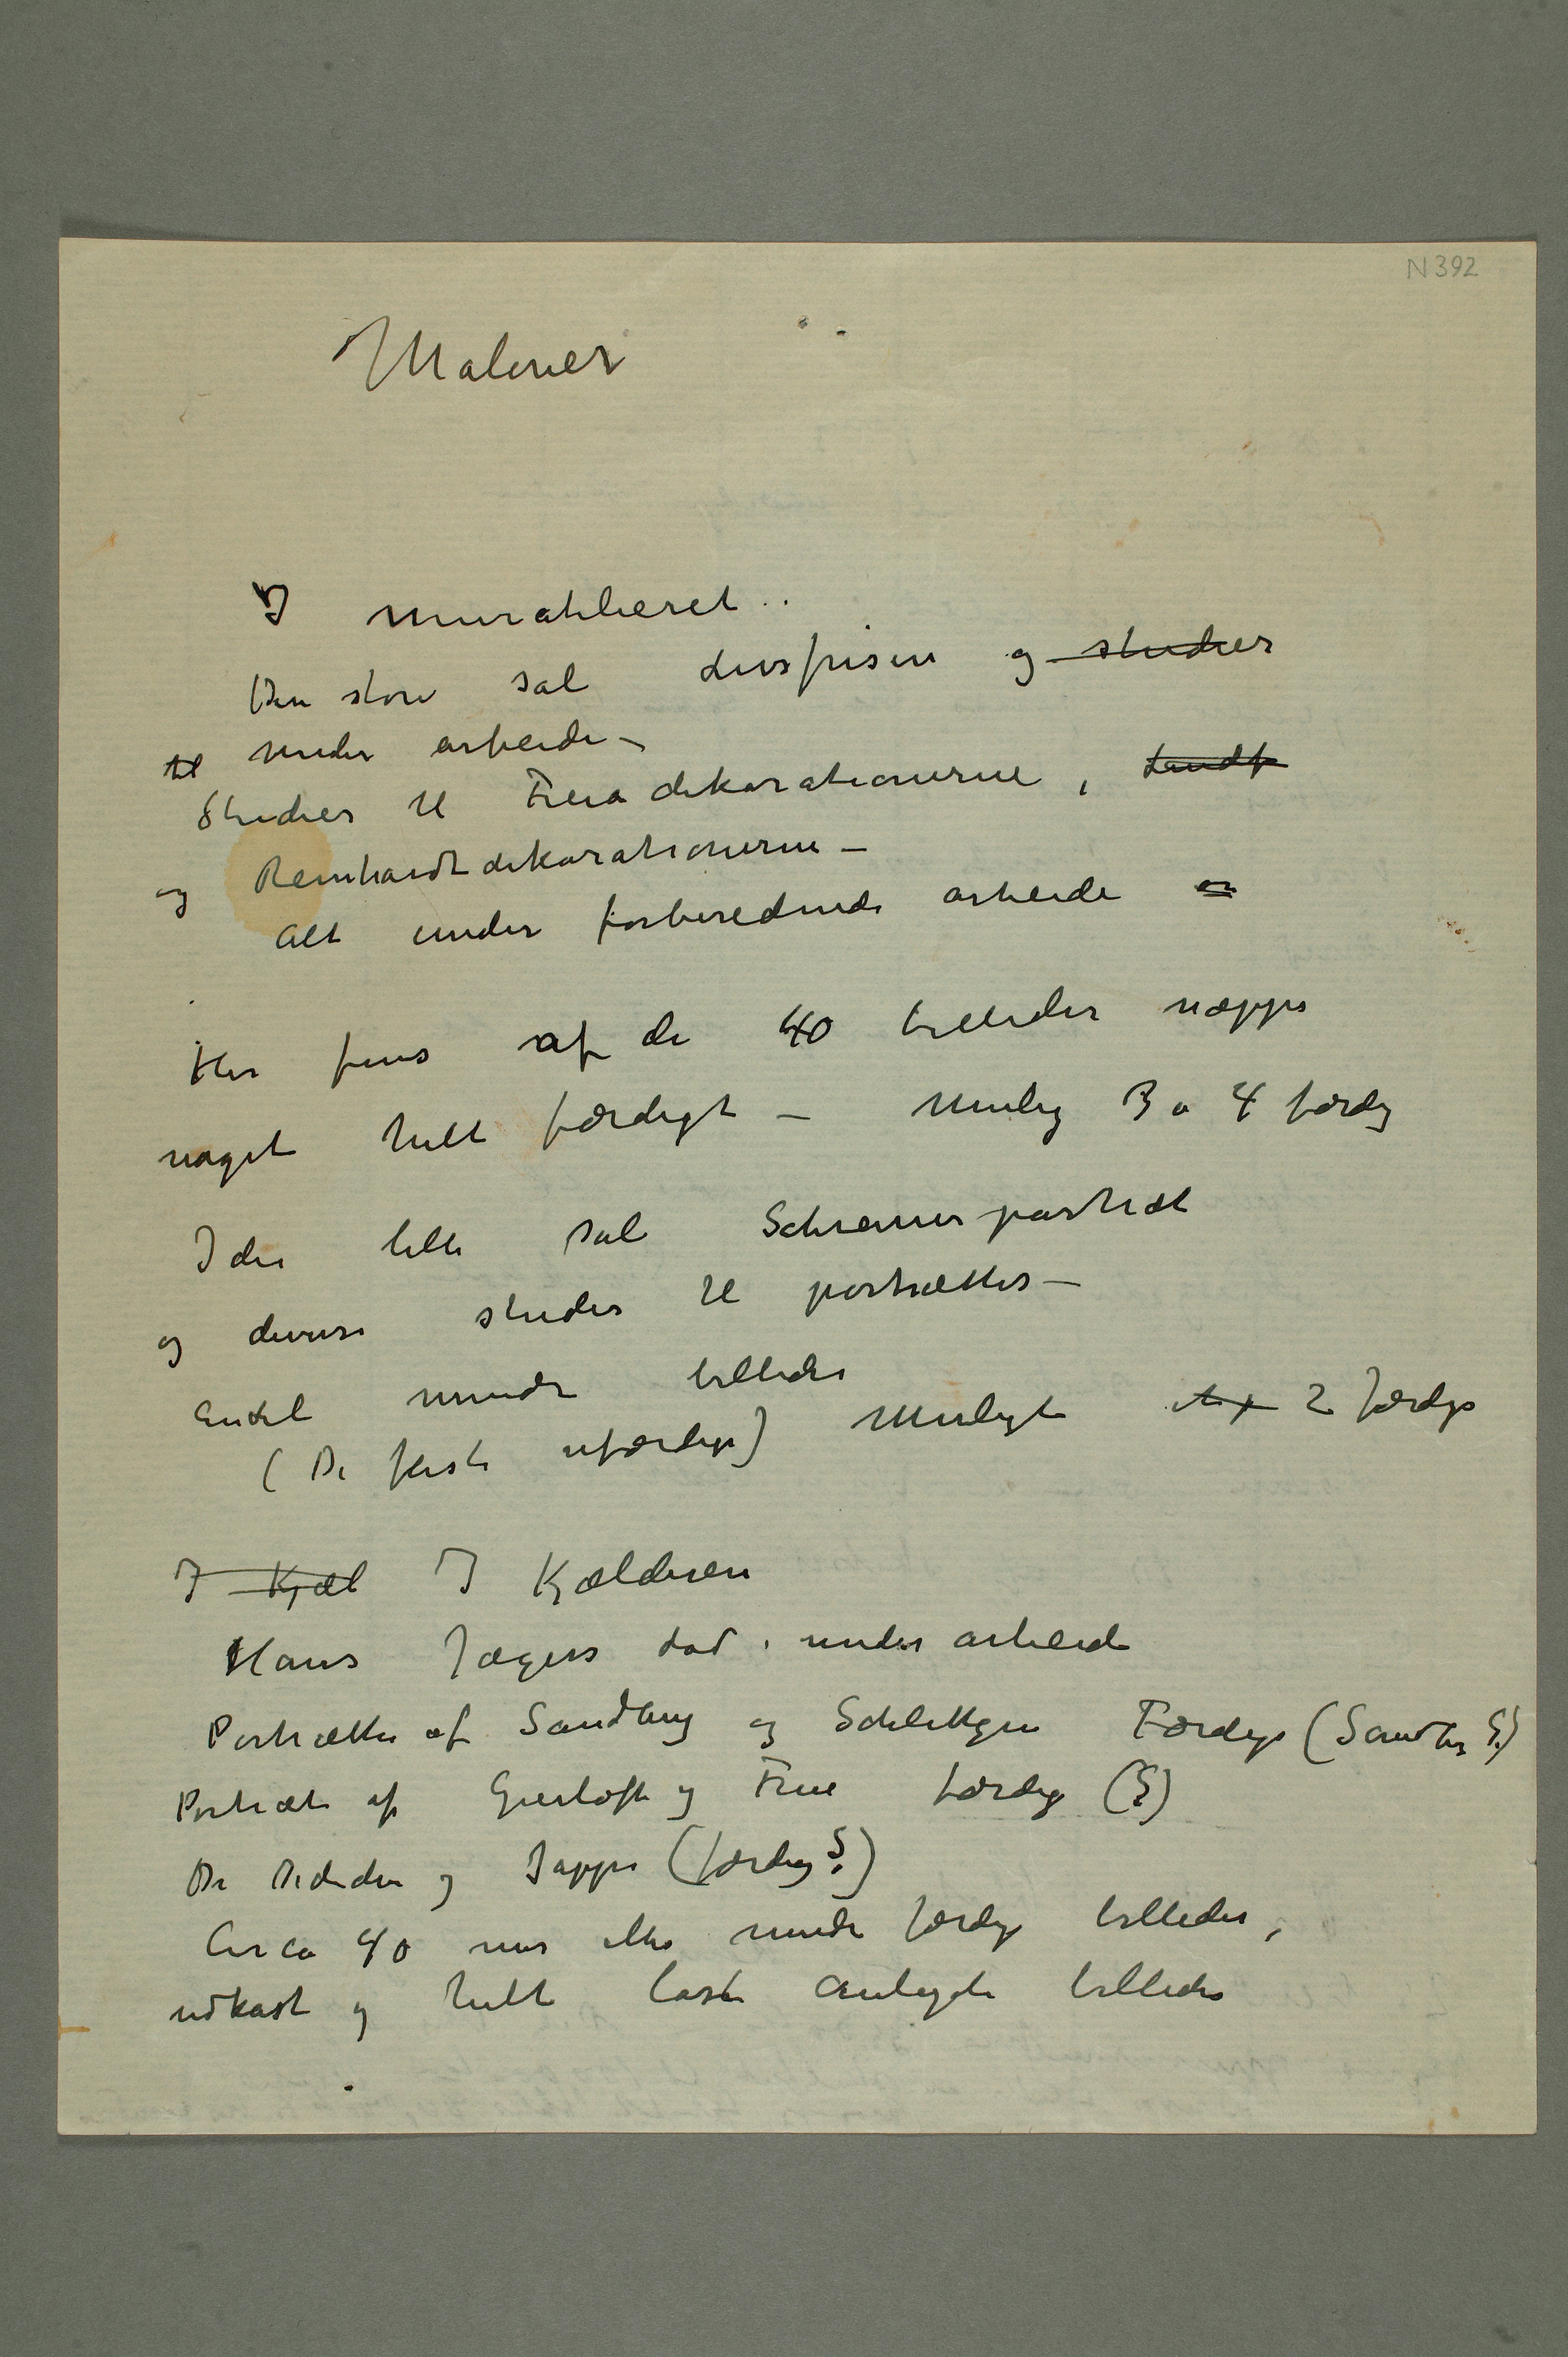 N 392
Malerier
I muratelieret..
Den store sal Livsfrisen og studier
til under arbeide –
Studier til Freiadekorationerne, Landf
og Reinhardtdekorationerne –
Alt under forberedende arbeide en
Her fins af de 40 billeder neppe
noget helt færdigt – Mulig 3 a 4 færdig
I den lille sal Schreinerportræt
og diverse studier til portrætter –
Endel mindre billeder
(De fleste ufærdige) Muligt 2 færdige
I Kjæl I Kjælderen
Hans Jægers død. under arbeide
Portrætter af Sandberg og Schlittgen Færdige (Sandberg ?)
Portræt af Gierløff og Frue færdig (?)
De og Jappe (færdig ?)
Circa 40 mer eller mindre færdige billeder,
udkast og helt løst anlagte billeder